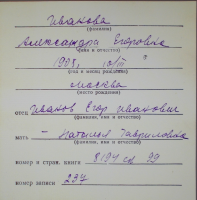 Иванова
(фамилия)
Александра Егоровна
(имя и отчество)
10/III
(год и месяц рождения)
Москва
(место рождения)
отец Иванов Егор Иванович
(фамилия, имя и отчество)
мать – Наталья Гавриловна
(фамилия, имя и отчество)
номер и стран. книги 99
номер записи 237